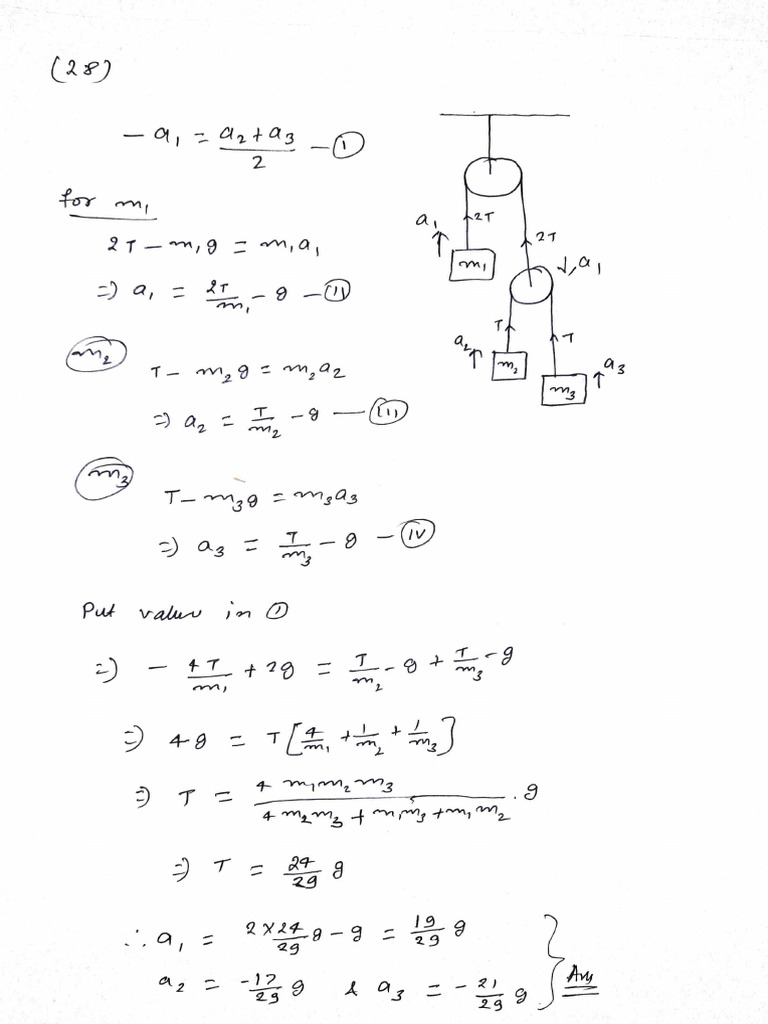 (28)
- a₁ = (a₂ + a₃)/2 - (I)
for m₁
2T - m₁g = m₁a₁
=) a₁ = 2T/m₁ - g - (II)
m₂
T - m₂g = m₂a₂
=) a₂ = T/m₂ - g - (III)
m₃
T - m₃g = m₃a₃
=) a₃ = T/m₃ - g - (IV)
Put value in (I)
=) - 4T/m₁ + 2g = T/m₂ - g + T/m₃ - g
=) 4g = T[4/m₁ + 1/m₂ + 1/m₃]
=) T = 4 m₁m₂m₃/(4 m₂m₃ + m₁m₃ + m₁m₂) . g
=) T = 24/29 g
∴ a₁ = 2×24/29 g - g = 19/29 g
a₂ = -17/29 g & a₃ = - 21/29 g } Ans
a₁
2T
m₁
2T
↓ a₁
T
T
a₂
m₂
m₃
a₃